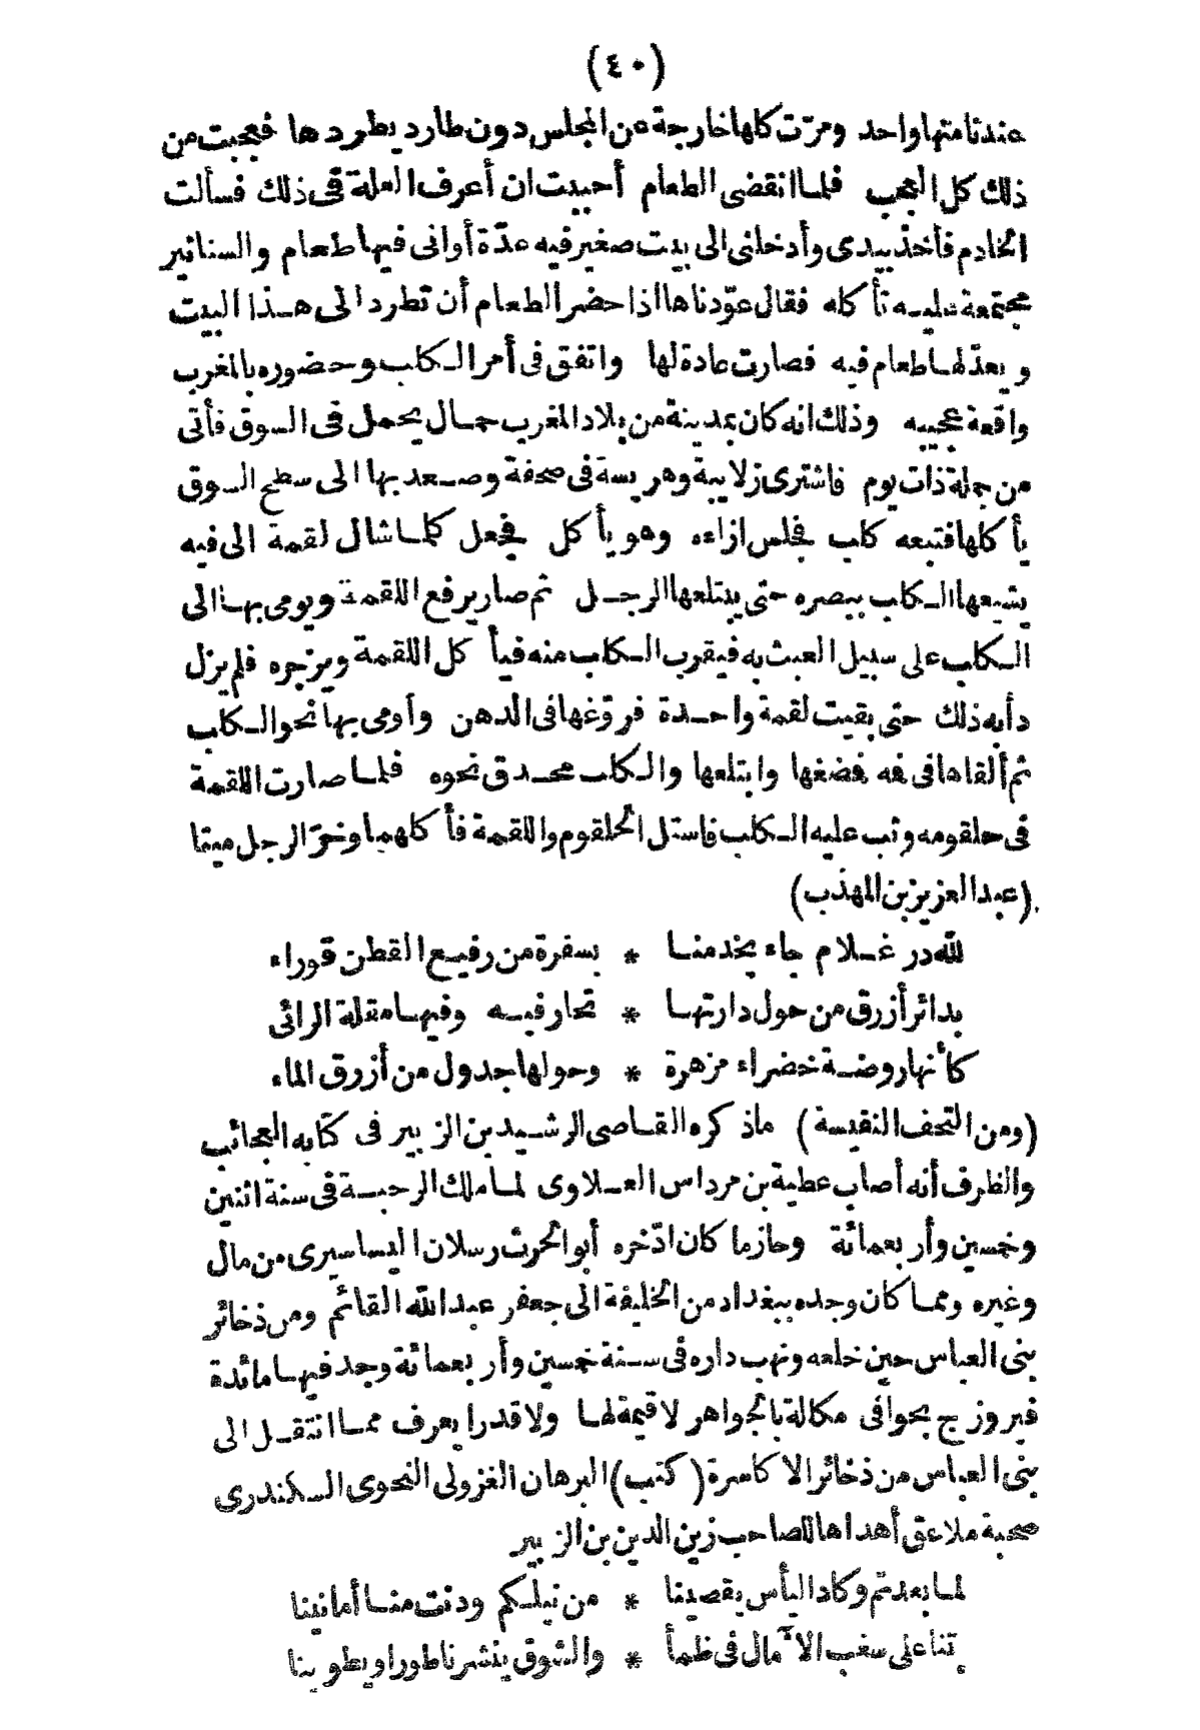 (٤٠)
عندنا منها واحد ومرّت كلها خارجة عن المجلس دون طارد يطردها فعجبت من
ذلك كل العجب فلما انقضى الطعام أحببت ان أعرف العلة فى ذلك فسألت
الخادم فأخذ بيدى وأدخلنى الى بيت صغير فيه عدّة أوانى فيها طعام والسنانير
مجتمعة عليه تأكله فقال عوّدناها اذا حضر الطعام أن تطرد الى هذا البيت
ويعدّ لها طعام فيه فصارت عادة لها واتفق فى أمر الكلب وحضوره بالمغرب
واقعة عجيبه وذلك انه كان بمدينة من بلاد المغرب حمال يحمل فى السوق فأتى
من جملة ذات يوم فاشترى زلابية وهريسة فى صحفة وصعد بها الى سطح السوق
يأكلها فتبعه كلب فجلس ازاءه وهو يأكل فجعل كلما شال لقمة الى فيه
يشيعها الكلب ببصره حتى يبتلعها الرجل ثم صار يرفع اللقمة ويومى بها الى
الكلب على سبيل العبث به فيقرب الكلب منه فيأكل اللقمة ويزجره فلم يزل
دأبه ذلك حتى بقيت لقمة واحدة فروّغها فى الدهن وأومى بها نحو الكلب
ثم ألقاها فى فمه فمضغها وابتلعها والكلب محدق نحوه فلما صارت اللقمة
فى حلقومه وثب عليه الكلب فاستل الحلقوم واللقمة فأكلهما وخرّ الرجل ميتا
(عبد العزيز بن المهذب)
لله در غلام جاء يخدمنا * بسفرة من رفيع القطن قوراء
بدائر أزرق من حول دارتها * تحار فيه وفيها مقلة الرائى
كأنها روضة خضراء مزهرة * وحولها جدول من أزرق الماء
(ومن التحف النفيسة) ماذكره القاضى الرشيد بن الزبير فى كتابه العجائب
والظرف أنه أصاب عطية بن مرداس العلاوى لما ملك الرحبة فى سنة اثنين
وخمسين وأربعمائة وحاز ما كان ادّخره أبو الحرث رسلان اليساسيرى من مال
وغيره ومما كان وجده ببغداد من الخليفة الى جعفر عبد الله القائم ومن ذخائر
بنى العباس حين خلعه ونهب داره فى سنة خمسين وأربعمائة وجد فيها مائدة
فيروزج بحوافى مكللة بالجواهر لا قيمة لها ولا قدرا يعرف مما انتقل الى
بنى العباس من ذخائر الاكاسرة (كتب) البرهان الغزولى النحوى السكندرى
صحبة ملاعق أهداها للصاحب زين الدين بن الزبير
لما بعدتم وكاد اليأس يقصينا * من نيلكم ودنت منا أمانينا
بتنا على سغب الآمال فى ظمأ * والشوق ينشرنا طورا ويطوينا